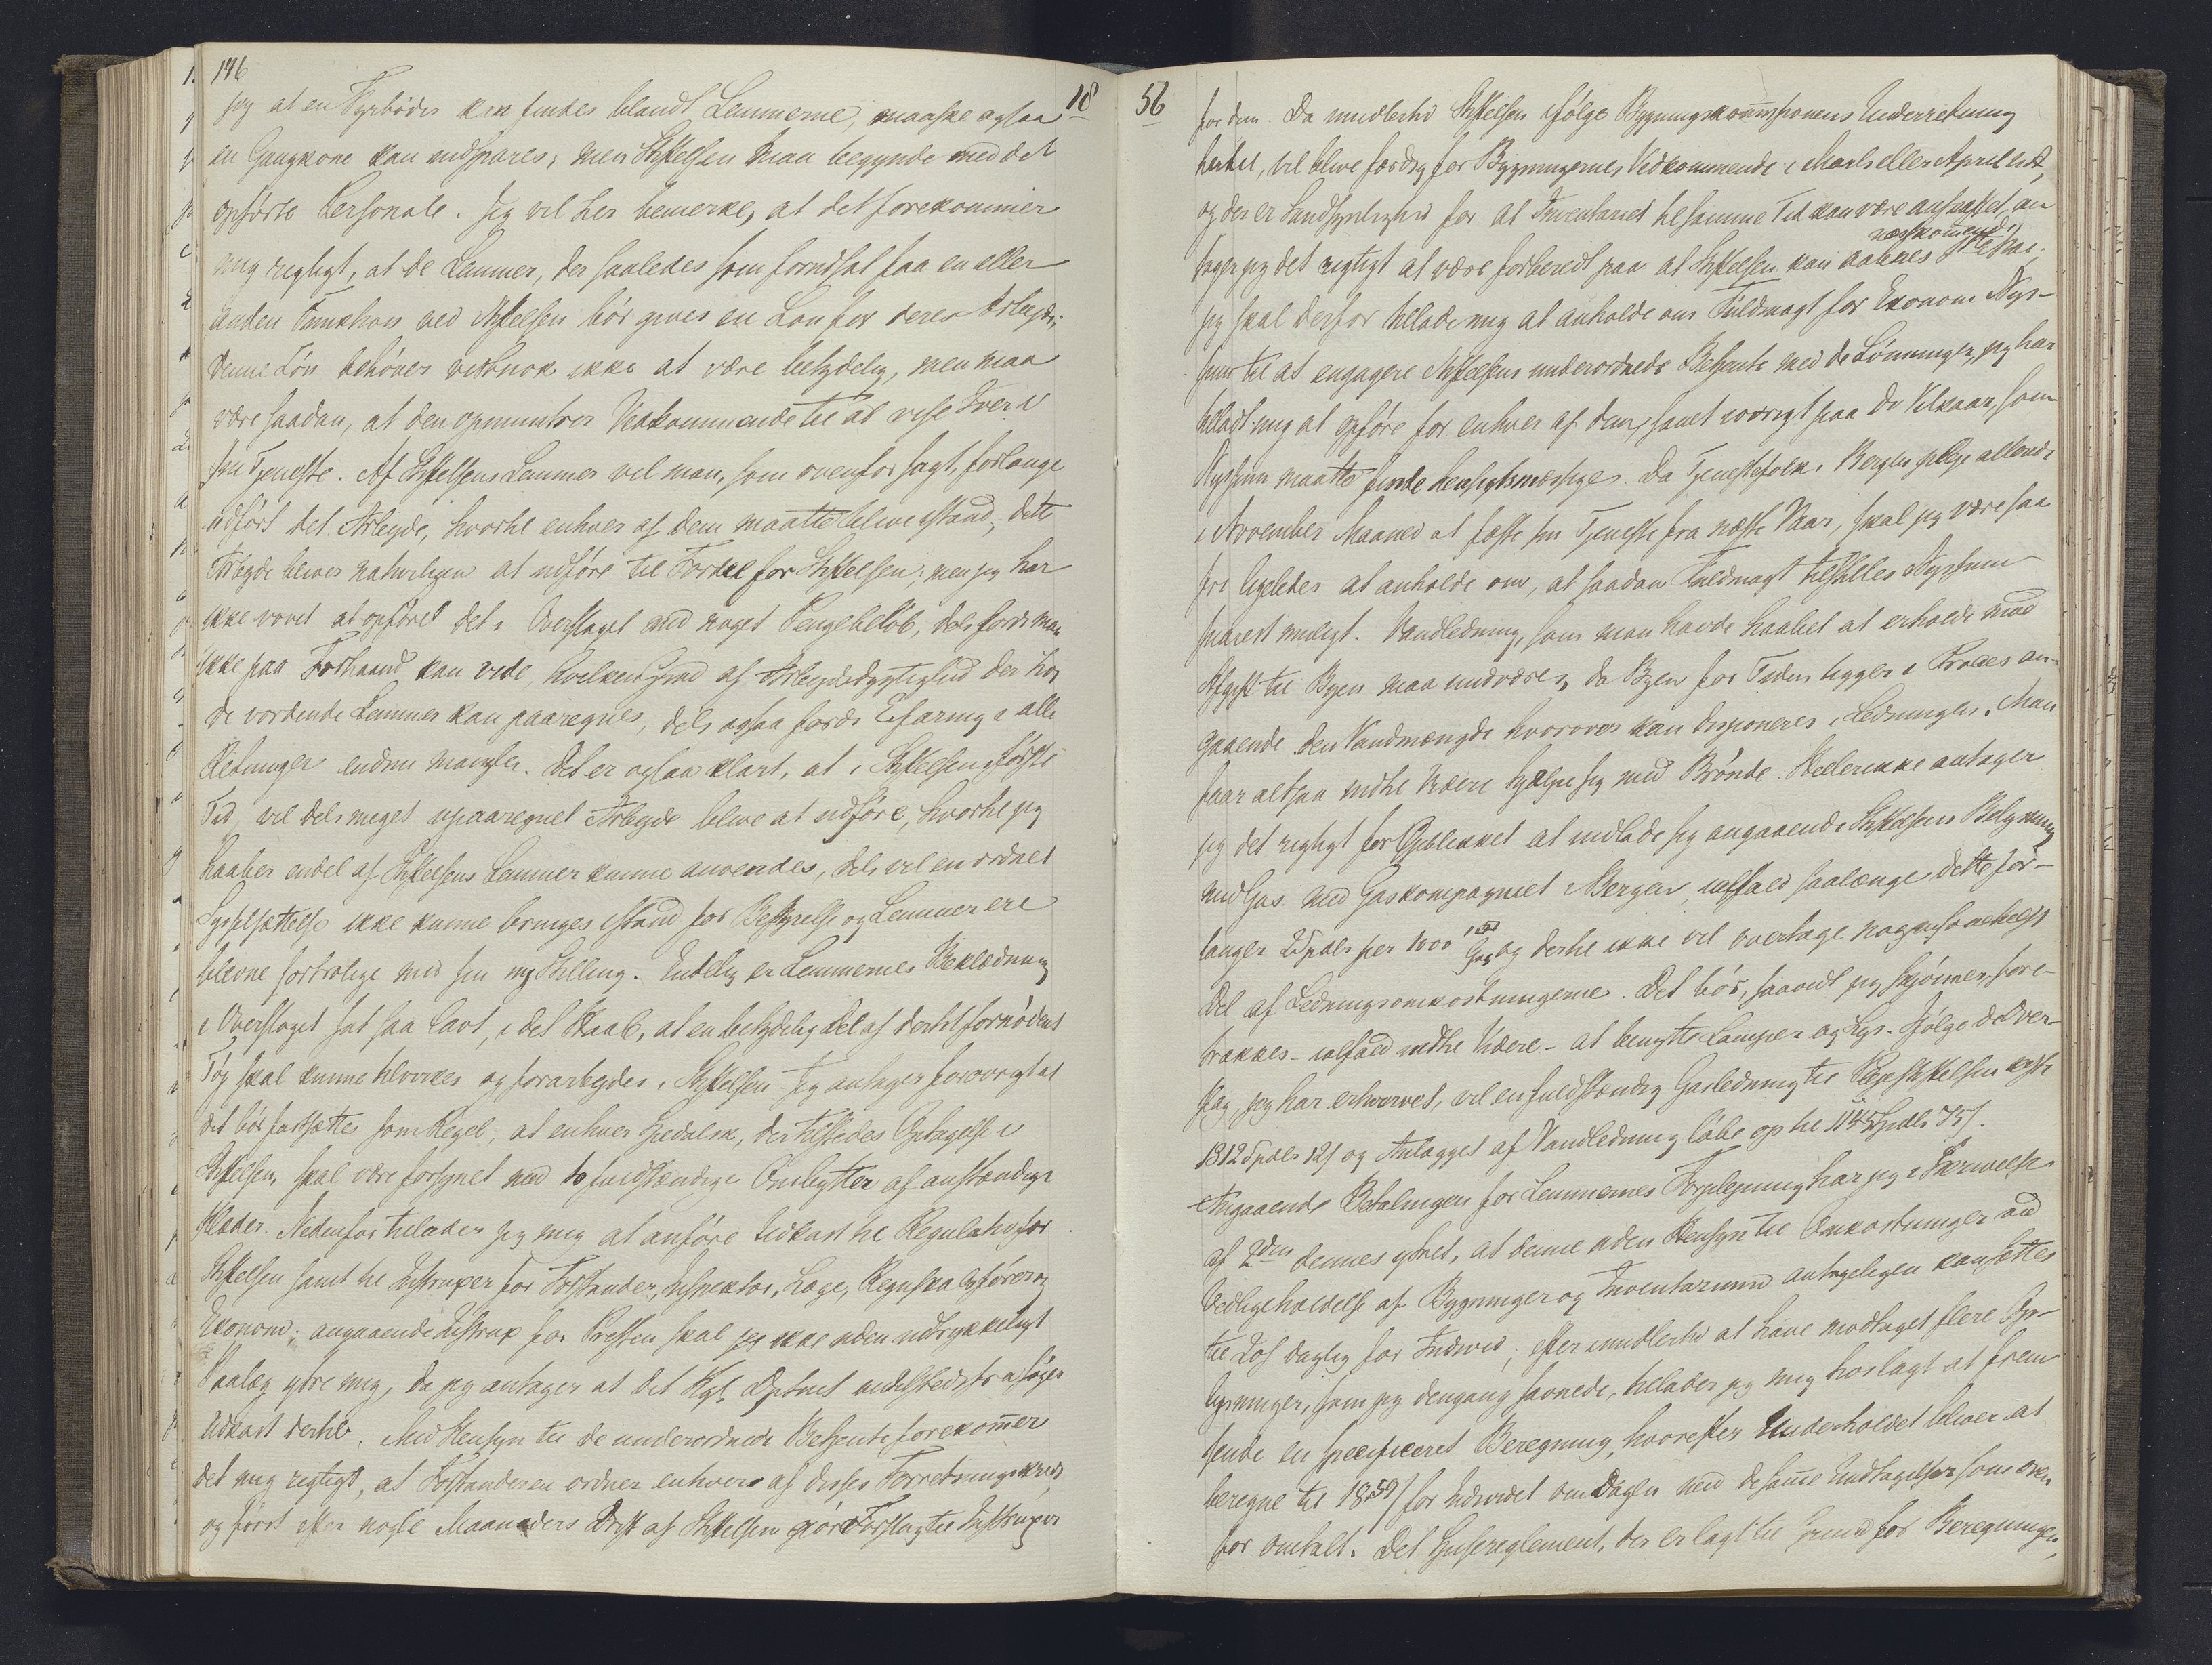 146
jeg at en Fyrböder kan findes blandt Lemmerne, maaske ogsaa
en Gangkone kan indspares; men Stiftelsen maa begynde med det
opförte Personale. Jeg vil her bemerke, at det forekommer
mig rigtigt, at de Lemmer, der saaledes som forudsat faa en eller
anden Funktion ved Stiftelsen bör gives en Lön for deres Arbeyde;
denne Lön behöver vistnok ikke at være betydelig, men maa
være saadan, at den opmuntrer Vedkommende til at vise Iver i
sin Tjeneste. Af Stiftelsens Lemmer vil man, som ovenfor sagt, forlange
udfört det Arbeyde, hvortil enhver af dem maatte blive istand; dette
Arbeyde bliver naturligen at udföre til Fordel for Stiftelsen; men jeg har
ikke vovet at opföret det i Overslaget med noget Pengebelöb, dels fordi man
ikke paa Forhaand kan vide, hvilken Grad af Arbeydsdygtighed der hos
de vordende Lemmer kan paaregnes, dels ogsaa fordi Erfaring i alle
Retninger endnu mangler. Det er ogsaa klart, at i Stiftelsens förste
Tid, vil dels meget upaaregnet Arbeyde blive at udföre, hvortil jeg
haaber endel af Stiftelsens Lemmer kunne anvendes, dels vil en ordnet
Sysselsættelse ikke kunne bringes istand för Bestyrelse og Lemmer ere
blevne fortrolige med sin ny Stilling. Endelig er Lemmernes Beklædning
i Overslaget sat saa lavt, i det Haab, at en betydelig Del af dertil fornödent
Töy skal kunne tilvirkes og forarbeydes i Stiftelsen. Jeg antager forövrigt at
det bör fastsættes som Regel, at enhver Spedalsk, der tilstedes Optagelse i
Stiftelsen, skal være forsynet med to fuldstændige Ombytter af anstændige
Klæder. Nedenfor tillader jeg mig at anföre Udkast til Regulativ for
Stiftelsen samt til Instruxer for Forstander, Inspektor, Læge, Regnskabsförer og
Ekonom; angaaende Instrux for Presten skal jeg ikke uden udtrykkeligt
Paalæg ytre mig, da jeg antager at det Kgl. Dptmt andetstedsfra söger
Udkast dertil. Med Hensyn til de underordnede Betjente forekommer
det mig rigtigt, at Forstanderen ordner enhver af disses Forretningskreds,
og först efter nogle Maaneders Drift af Stiftelsen gör Forslag til Instruxer
18
56
for dem. Da imidlertid Stiftelsen ifölge Bygningskommissionens Underretning
hertil, vil blive færdig for Bygningernes Vedkommende i Marts eller April
og der er Sandsynlighed for at Inventariet til samme Tid kan være anskaffet, an
næstkommende
seer jeg det rigtigt at være forberedt paa at Stiftelsen kan aabnes 1ste Mai;
jeg skal derfor tillade mig at anholde om Fuldmagt for Ekonom Nys-
som til at engagere Stiftelsens underordnede Betjente med de Lönninger, jeg har
tilladt mig at opföre for enhver af dem, samt iövrigt paa de Vilkaar, som
Nyssum maatte finde hensigtsmæssige. Da Tjenestefolk i Bergen pleye allerede
i November Maaned at fæste sin Tjeneste fra næste Vaar, skal jeg være saa
fri ligeledes at anholde om, at saadan Fuldmagt tilstilles Nyssum
snarest muligt. Vandledning, som man havde haabet at erholde mod
Afgift til Byen maa undværes, da Byen for Tiden ligger i Proces an-
gaaende den Vandmængde hvorover kan disponeres i Ledningen. Man
faar altsaa indtil videre hjælpe sig med Brönde. Hellerikke antager
jeg det rigtigt for Öieblikket at indlade sig angaaende Stiftelsens Belysning
med Gas med Gaskompagniet i Bergen, ialfald saalænge dette for-
langer 2 Spdlr per 1000 Gas og dertil ikke vil overtage nogensomhelst
Del af Ledningsomkostningerne. Det bör, saavidt jeg skjönner, fore-
trækkes - ialfald indtil Videre - at benytte Lamper og Lys. Ifölge de Over-
slag, jeg har erhvervet, vil en fuldstændig Gasledning til Pleiestiftelsen koste
1312 Spdlr 12 s og Anlægget af Vandledning löbe op til 1145 Spdlr 75 s.
Angaaende Betalingen for Lemmernes Forpleyning har jeg i Skrivelse
af 2den dennes ytret, at denne uden Hensyn til Omkostninger ved
Vedligeholdelse af Bygninger og Inventarium antageligen kan sættes
til 20 s daglig for Individ; efter imidlertid at have modtaget flere Op-
lysninger, som jeg dengang savnede, tillader jeg mig hoslagt at frem-
sende en specificeret Beregning, hvorefter Underholdet bliver at
beregne til 18,59 s for Individet om Dagen med de samme Undtagelser som oven
for omtalt. Det Spisereglement, der er lagt til Grund for Beregningen,